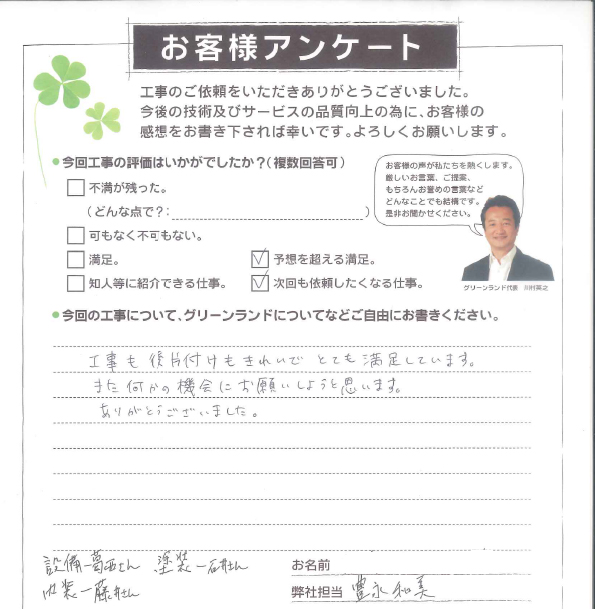 お客様アンケート
工事のご依頼をいただきありがとうございました。
今後の技術及びサービスの品質向上の為に、お客様の
感想をお書き下されば幸いです。よろしくお願いします。
●今回工事の評価はいかがでしたか?(複数回答可)
不満が残った。
(どんな点で?:　)
可もなく不可もない。
満足。
☑予想を超える満足。
知人等に紹介できる仕事。
☑次回も依頼したくなる仕事。
お客様の声が私たちを熱くします。
厳しいお言葉、ご提案、
もちろんお誉めの言葉など
どんなことでも結構です。
是非お聞かせください。
グリーンランド代表　川村英之
●今回の工事について、グリーンランドについてなどご自由にお書きください。
工事も後片付けもきれいでとても満足しています。
また何かの機会にお願いしようと思います。
ありがとうございました。
設備—葛西さん　塗装—石井さん
内装—藤井さん
お名前
弊社担当 豊永和美